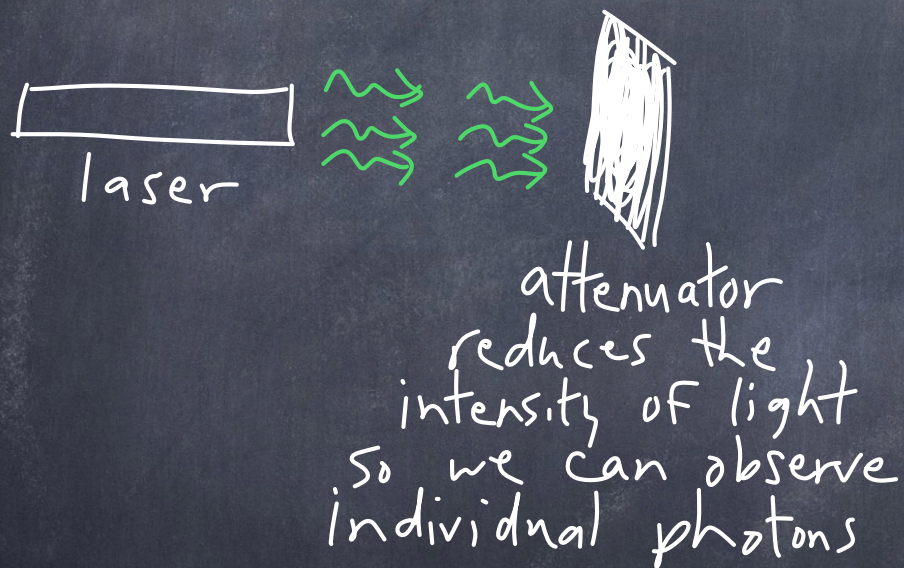 laser
attenuator
reduces the
intensity of light
so we can observe
individual photons